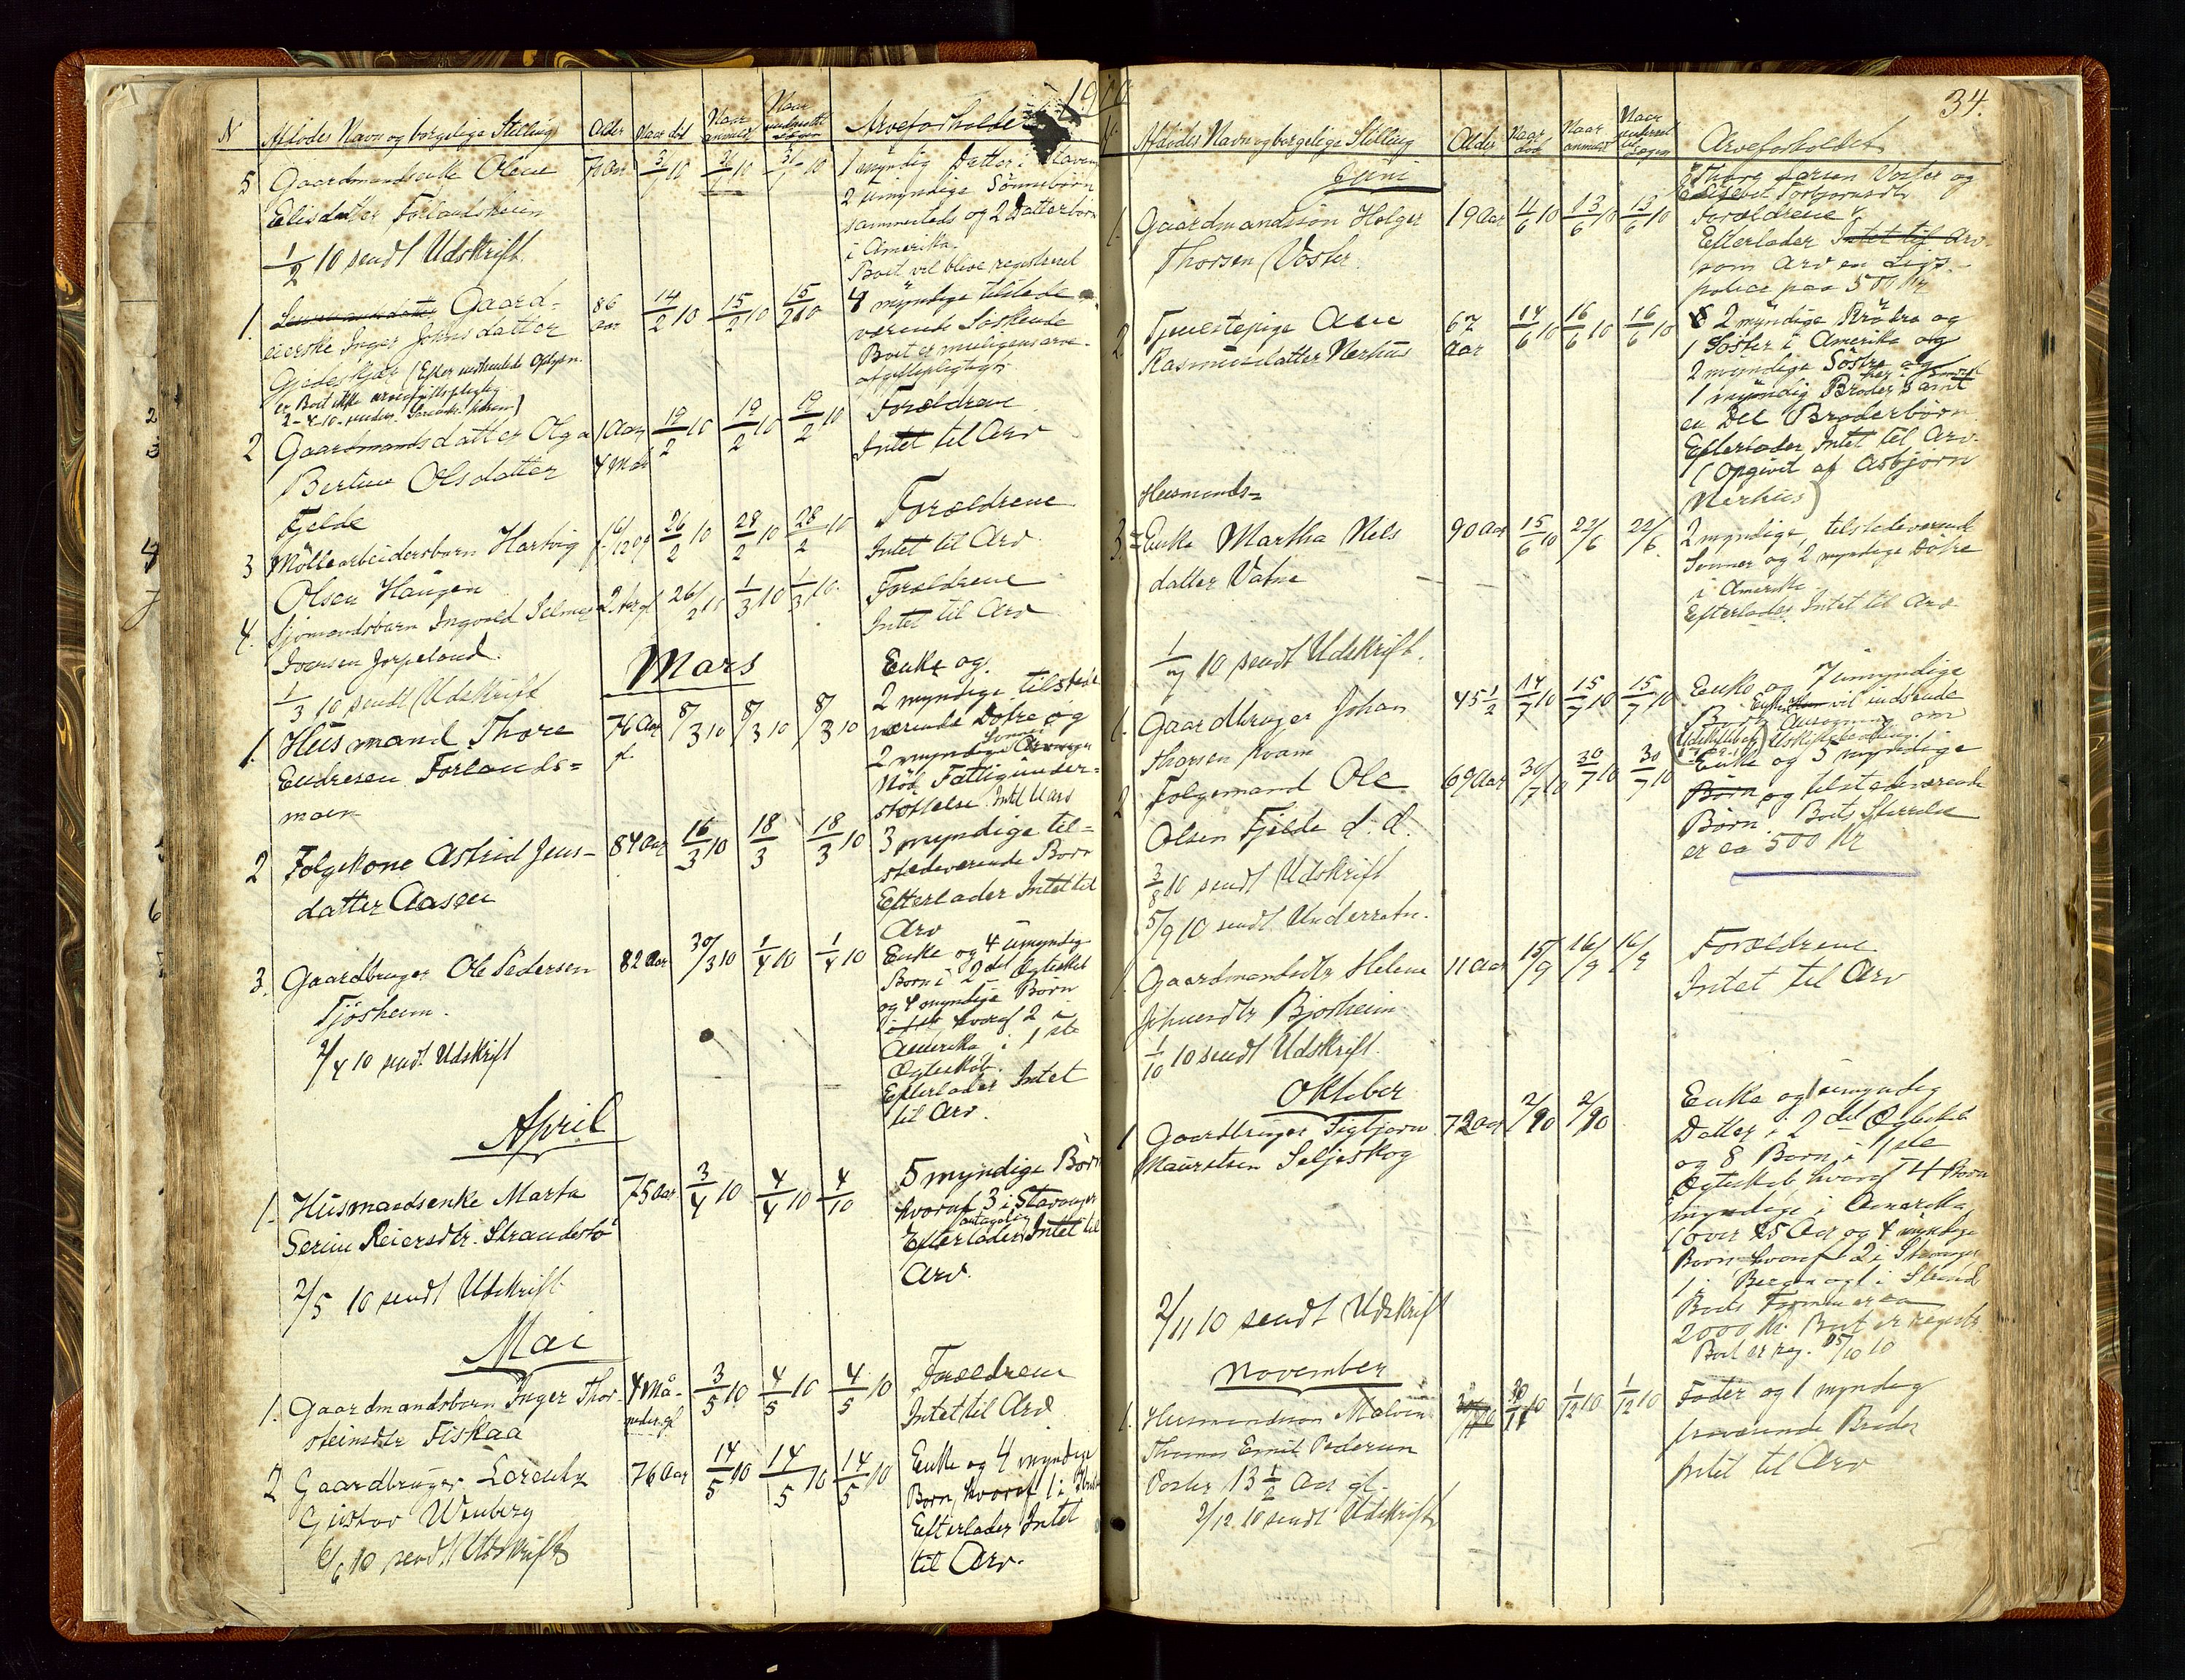 1910
N
Afdødes Navn og borgelige Stilling
Alder
Naar død
Naar anmeldt
Naar
Arveforholdet
5 Gaardmandsenke Olene
Elisdatter Forlandsheim
1/2 10 sendt Udskrift
70 Aar
31/1 10
31/1 10
31/1 10
1 myndig Datter i Stavang
2 umyndige Sønnebørn
sammesteds og 2 Datterbørn
i Amerika.
Boet vil blive registreret
1. Gaard-
eierske Inger Johnsdatter
er Boet ikke arveafgiftspligtig
86
aar
14/2 10
15/2 10
15/2 10
4 myndige tilstede
værende Søskende
Boet er muligens arve-
afgiftspligtigt
2 Gaardmandsdatter Olga
Bertine Olsdatter
Fjelde
1 Aar
4 Mdr
19/2 10
19/2 10
19/2 10
Forældrene
Intet til Arv
3 Møllearbeidersbarn Hartvig
Olsen Haugen
26/2 10
28/2 10
28/2 10
Forældrene
Intet til Arv
4. Sjømandsbarn Ingvald Selmer
Ivensen Jørpeland.
1/3 10 sendt Udskrift
2 Aar gl
26/2 10
1/3 10
1/3 10.
Forældrene
Intet til Arv
Mars
1. Husmand Thore
Endresen Forlands=
moen
76 Aar
gl.
8/3 10
8/3 10
8/3 10
Enke og
2 myndige tilstede
værende Døtre og
2 myndige Sønner
Nød Fattigunder-
støttelse Intet til Arv
2 Følgekone Astrid Jens-
datter Aasen
84 Aar
16/3 10
18/3
18/3 10
3 myndige til-
stedeværende Børn
Efterlader Intet til
Arv
3. Gaardbruger Ole Pedersen
Tjøsheim.
2/4 10 sendt Udskrift
82 Aar
30/3 10
1/4 10
1/4 10
Enke og 4 umyndige
Børn i 2det Ægteskab
og 4 myndige Børn
hvoraf 2 i
Amerika i 1ste
Ægteskab.
Efterlader Intet
til Arv.
April
1. Husmandsenke Marta
Serine Reiersdtr. Strandestø
2/5 10 sendt Udskrift
75 Aar
3/4 10
4/4 10
4/10
5 myndige Børn
hvoraf 3 i Stavanger
antagelig
Efterlader Intet til
Arv.
Mai
1. Gaardmandsbarn Inger Thor-
steinsdtr Fiskaa
4 Må-
neder gl
3/5 10
4/5 10
4/5 10
Forældrene
Intet til Arv
2 Gaardbruger Lorentz
Gustav Wenberg
6/6 10 sendt Udskrift
76 Aar
14/5 10
14/5 10
14/5 10
Enke og 4 myndige
Børn, hvoraf 1 i
Efterlader Intet
til Arv.
34.
Afdødes Navn og borgelige Stilling
Alder
Naar død
Naar anmeldt
Naar
Arveforholdet
Juni
1. Gaardmandssøn Holger
Thorsen Voster
19 Aar
4/6 10
13/6 10
13/6 10
Thore Larsen Voster og
Elisabet Torbjørnsdtr
Forældrene
Efterlader Intet til Arv
som Arv en Livs-
police paa 500 Kr
2 Tjenestepige Ane
Rasmusdatter Nerhus
67
Aar
14/6 10
16/6 10
16/6 10
2 myndige Brødre og
1 Søster i Amerika og
2 myndige Søstre og
1 myndig Broder samt
en Del Broderbørn
Efterlader Intet til Arv.
(Opgivet af Asbjørn
Nerhus)
Husmands=
3. Enke Martha Nils
datter Vatne
1/7 10 sendt Udskrift.
90 Aar
15/6 10
22/6
22/6.
2 myndige tilstedeværende
Sønner og 2 myndige Døtre
i Amerika
Efterlader Intet til Arv
1. Gaardbruger Johan
Thorsen Kvam
45 1/2
14/7 10
15/7 10
15/7 10
Enke og 7 umyndige
Børn Enken vil indsende
Ansøgning om
2 Følgemand Ole
Olsen Fjelde d. d.
3/8 10 sendt Udskrift
5/9 10 sendt Underretn.
69 Aar
30/7 10
30/7 10
30/7 10
Enke og 5 myndige
Børn og tilstedeværende
Børn. Boets Størrelse
er ca 500 Kr
1. Gaardmandsdtr Helene
Bjørheim
1/10 10 sendt Udskrift.
11 Aar
15/9
16/9
16/9
Forældrene
Intet til Arv
Oktober
1 Gaardbruger Sigbjørn
Mauritsen Seljeskog
2/11 10 sendt Udskrift
72 Aar
Enke og 1 umyndig
Datter i 2det Ægteskab
og 8 Børn i 1ste
Ægteskab hvoraf 4 Børn
myndige i Amerika
over 25 Aar og 4 myndige
Børn hvoraf 2 i Stavanger
1 i Bergen og 1 i Strand
Boets Formue ca
2000 Kr. Boet er registr.
Boet er reg. 25/10 10
November
1. Husmandssøn Malvin
Thomas Emil Pedersen
Voster 13 1/2 Aar gl.
2/12 10 sendt Udskrift
30/11 10
1/12 10
1/12 10
Fader og 1 myndig
fraværende Broder
Intet til Arv